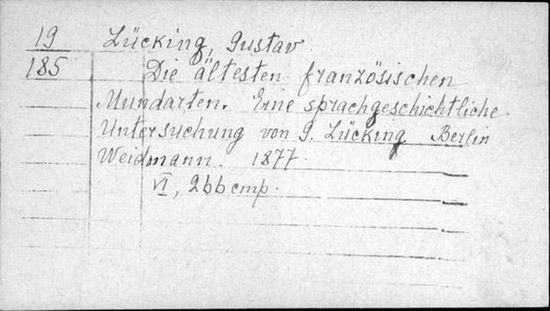 19 Lücking, Gustav
185 Die ältesten französischen
Mundarten. Eine sprachgeschichtliche
Untersuchung von G. Lücking Berlin
Weidmann. 1877.
VI, 266 cmp.